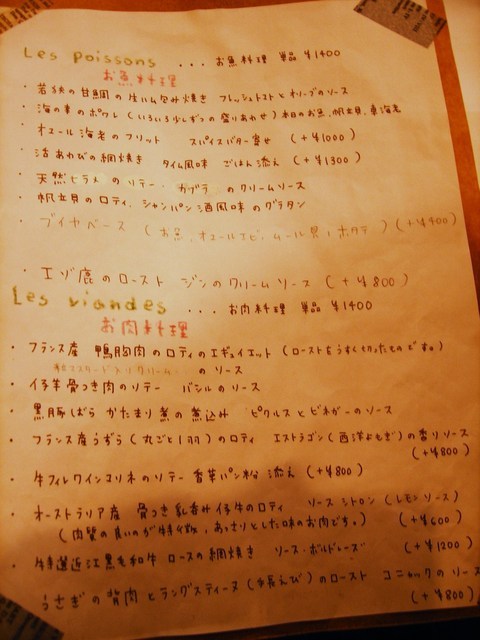 Les poissons ... お魚料理 単品 ¥1400
お魚料理
・若狭の甘鯛の生ハム包み焼き フレッシュトマトとオリーブのソース
・海の幸のポワレ (いろいろ少しずつの盛りあわせ) 和のお魚、帆立貝、車海老
・オマール海老のフリット スパイスバター寄せ (+¥1000)
・活あわびの網焼き タイム風味 ごはん添え (+¥1300)
・天然ヒラメのソテー カブラのクリームソース
・帆立貝のロティ、シャンパン酒風味のグラタン
・ブイヤベース (お魚、オマールエビ、ムール貝、ホタテ) (+¥400)
・エゾ鹿のロースト ジンのクリームソース (+¥800)
Les viandes ... お肉料理 単品 ¥1400
お肉料理
・フランス産 鴨胸肉のロティのエギュイエット (ローストをうすく切ったものです。)
粒マスタード入りクリームのソース
・仔羊骨つき肉のソテー バジルのソース
・黒豚ばら かたまり煮の煮込み ピクルスとビネガーのソース
・フランス産うずら (丸ごと1羽) のロティ エストラゴン (西洋よもぎ) の香りソース
(+¥800)
・牛フィレワインコリネのソテー 香草パン粉 添え (+¥800)
・オーストラリア産 骨つき乳呑み仔牛のロティ ソースシトロン (レモンソース)
(肉質の良いのが特徴、あっさりとした味のお肉です。) (+¥600)
・特選近江黒毛和牛 ロースの網焼き ソース・ボルドレーズ (+¥1200)
うさぎの背肉とラングスティーヌ (手長えび) のロースト コニャックのソース
(+¥800)